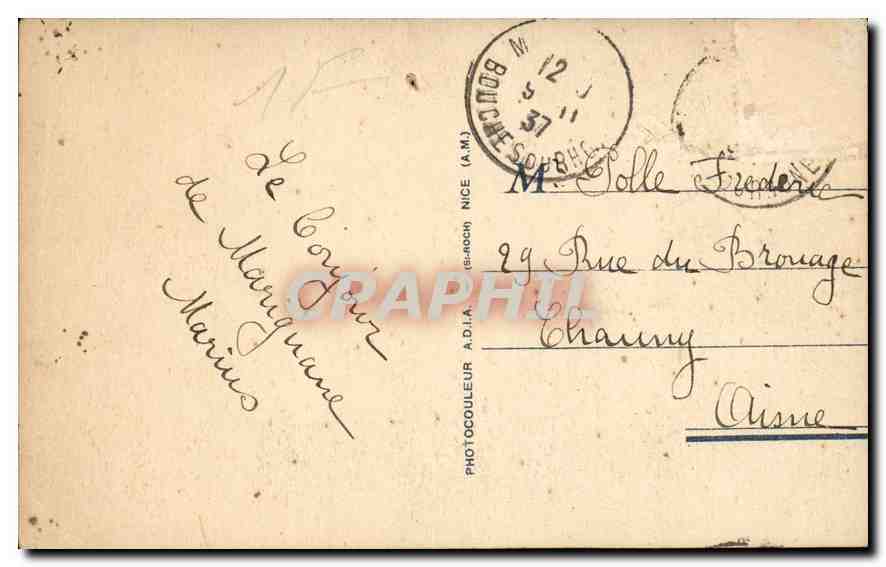 Le Bonjour
de Marignane
Marius
PHOTOCOULEUR A.D.I.A. (St-ROCH) NICE (A.M.)
M
12
37
BOUCHES DU RHONE
M. Polle Frederic
29 Rue du Brouage
Chauny
Aisne
CPARAMA